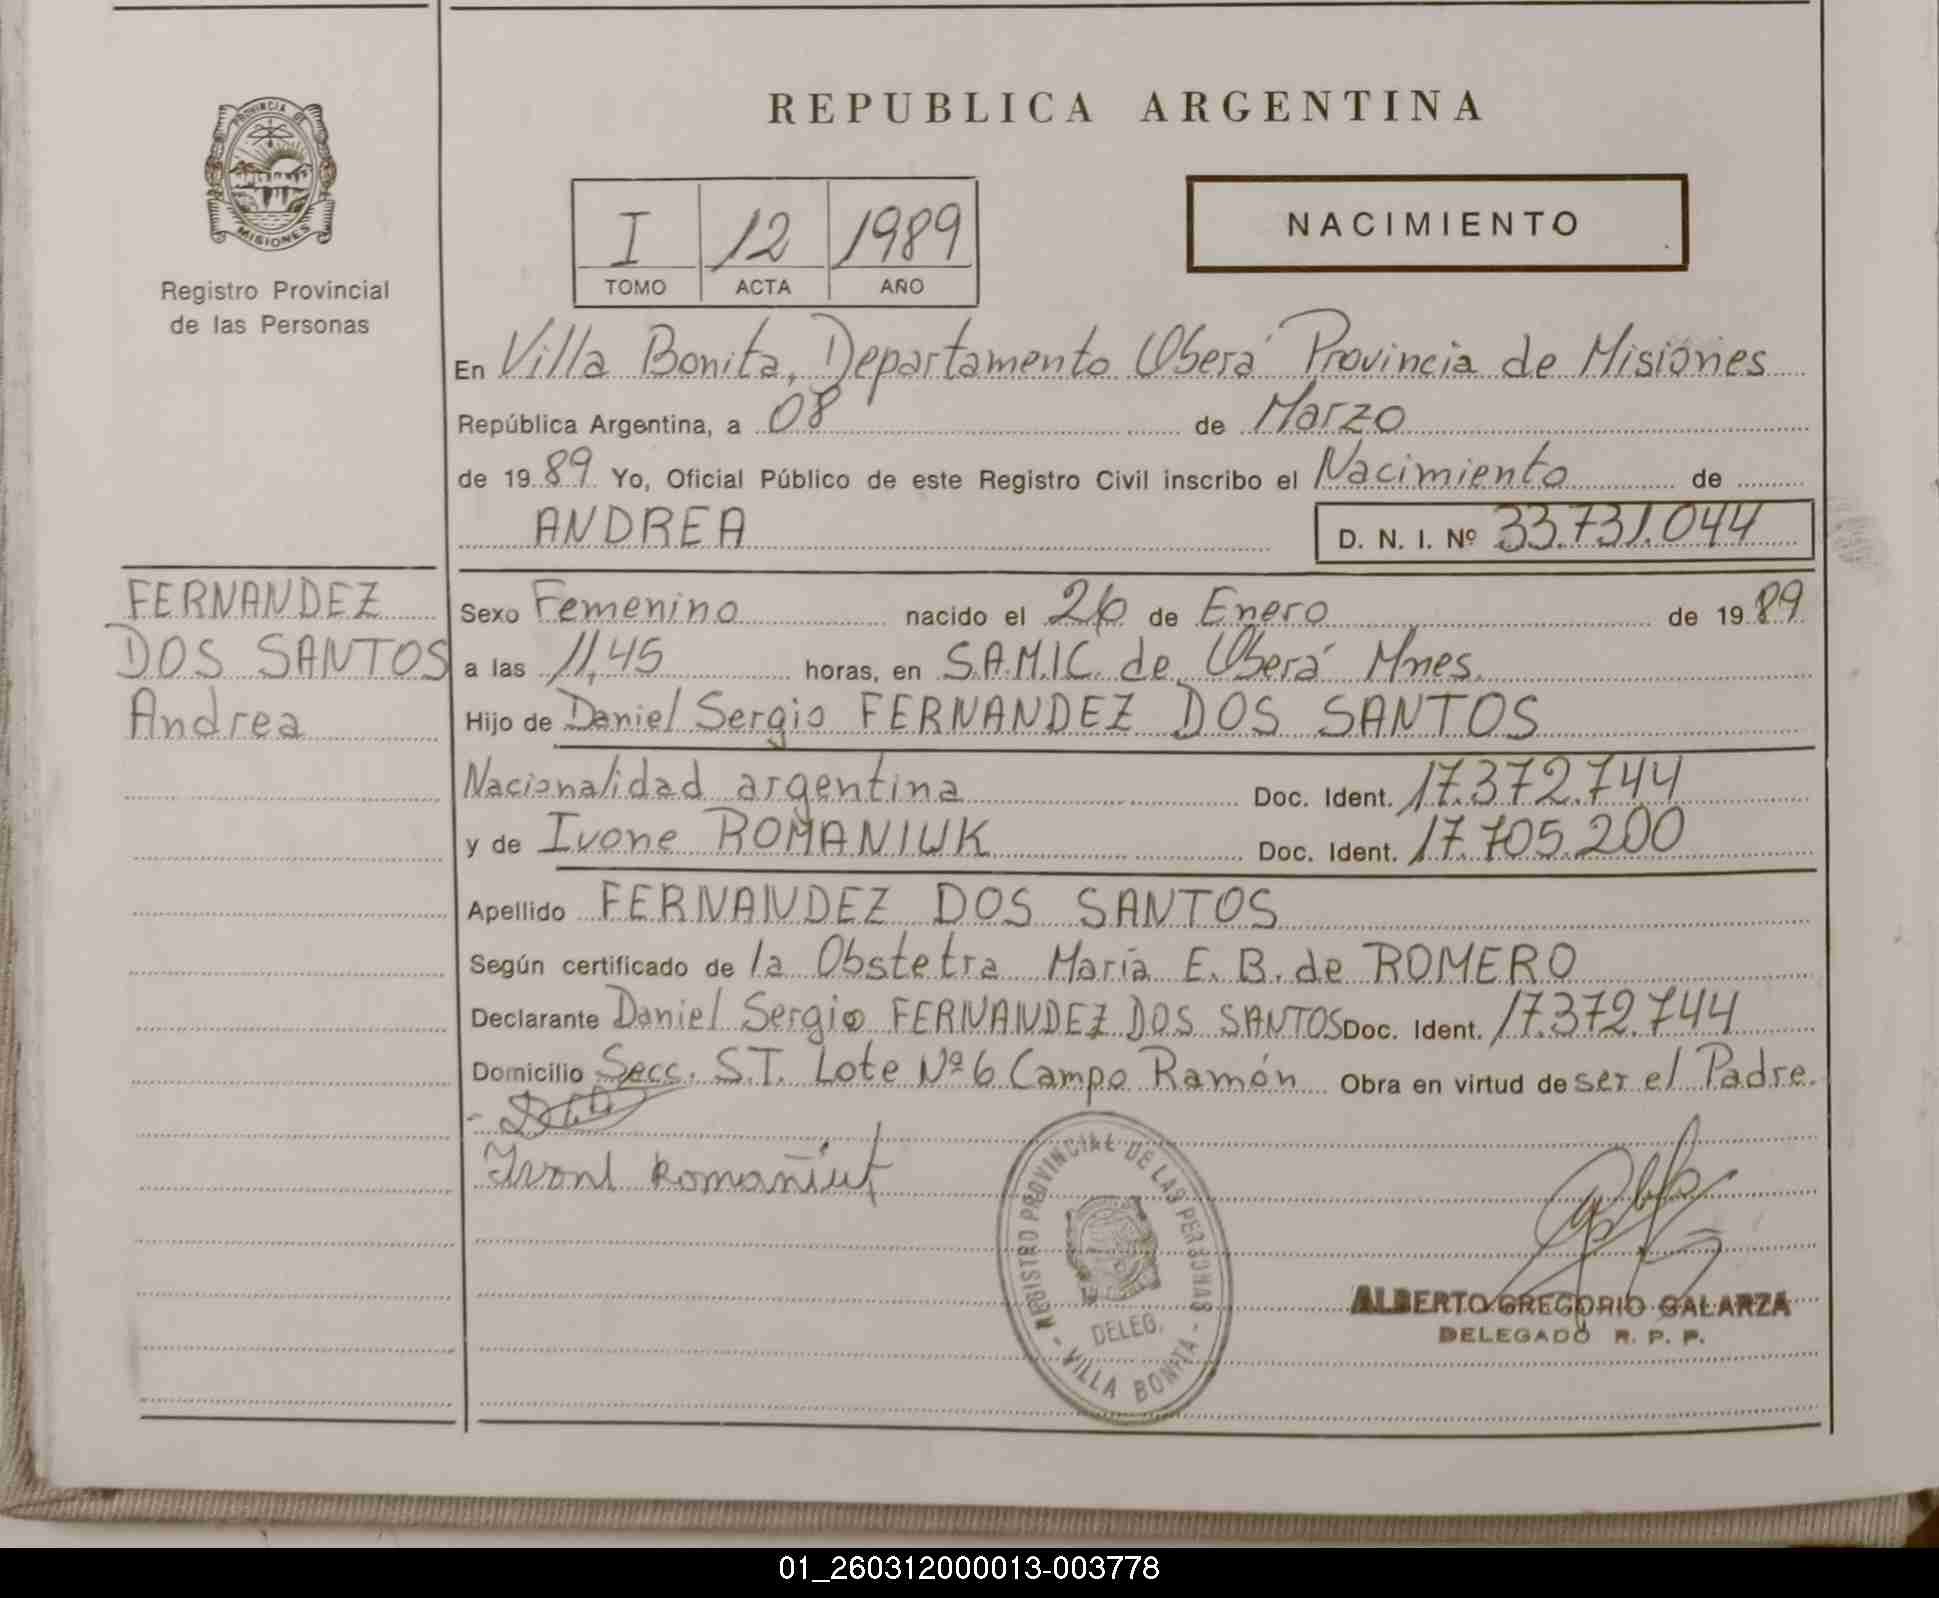 REPUBLICA ARGENTINA
PROVINCIA DE
MISIONES
Registro Provincial
de las Personas
I 12 1989
TOMO ACTA AÑO
NACIMIENTO
En Villa Bonita, Departamento Oberá Provincia de Misiones
República Argentina, a 08 de Marzo
de 1989 Yo, Oficial Público de este Registro Civil inscribo el Nacimiento de
ANDREA D. N. I. Nº 33.731.044
FERNANDEZ
DOS SANTOS
Andrea
Sexo Femenino nacido el 26 de Enero de 1989
a las 11,45 horas, en S.A.M.I.C. de Oberá Mnes.
Hijo de Daniel Sergio FERNANDEZ DOS SANTOS
Nacionalidad argentina Doc. Ident. 17.372.744
y de Ivone ROMANIUK Doc. Ident. 17.705.200
Apellido FERNANDEZ DOS SANTOS
Según certificado de la Obstetra Maria E. B. de ROMERO
Declarante Daniel Sergio FERNANDEZ DOS SANTOS Doc. Ident. 17.372.744
Domicilio Secc. S.T. Lote Nº 6 Campo Ramón Obra en virtud de ser el Padre.
REGISTRO PROVINCIAL DE LAS PERSONAS
DELEG.
- VILLA BONITA -
ALBERTO GREGORIO GALARZA
DELEGADO R. P. P.
01_260312000013-003778